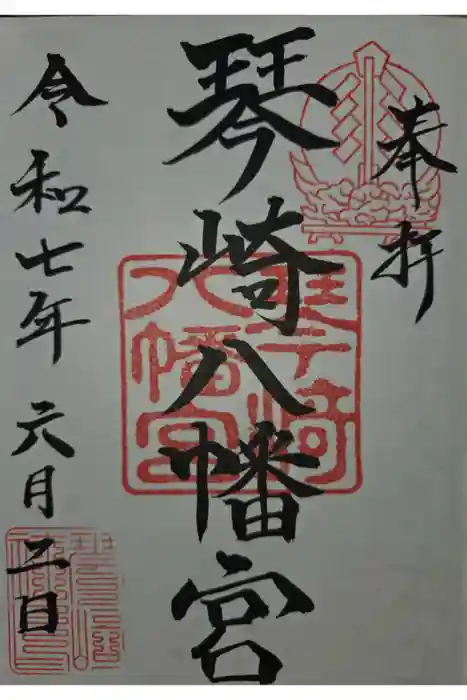 奉拝
琴崎八幡宮
令和七年六月二日
琴崎八幡宮